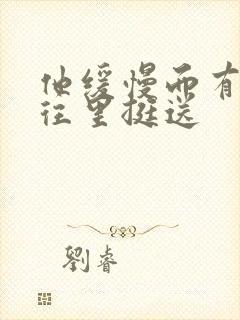 他缓慢而有
往里挺送
劉睿